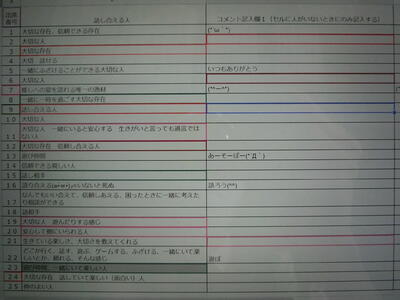 出席番号 話し合える人 コメント記入欄1(セルに人がいないときにのみ記入する)
1 大切な存在、信頼できる存在 (*´ω｀*)
2 大切な人
3 大切な存在
4 大切 話せる
5 一緒にふざけることができる大切な人 いつもありがとう
6 大切な人
7 推しへの愛を語れる唯一の逸材 (*^ー^*)
8 一緒に一時を過ごす大切な存在
9 話し合える人
10 大切な人
11 大切な人 一緒にいると安心する 生きがいと言っても過言ではない人
12 大切な存在 信頼し合える人
13 遊び仲間 あーそーぼー(*´Д｀)
14 信頼できる親しい人
15 話し相手
16 語り合える いないと死ぬ 語ろう(^^)
17 なんでもいい合えて、信頼しあえる、困ったときに一緒に考えたり相談ができる
18 話相手
19 大切な人 遊んだりする感じ
20 安心して側にいられる人
21 生きている楽しさ、大切さを教えてくれる
22 どこか行く、話す、遊ぶ、ゲームする、ふざける、一緒にいて楽しいとか、頼れる、そんな感じ 遊ぼ
23 遊び仲間、一緒にいて楽しい人
24 大切な存在 話していて楽しい(面白い)人
25 仲のよい人